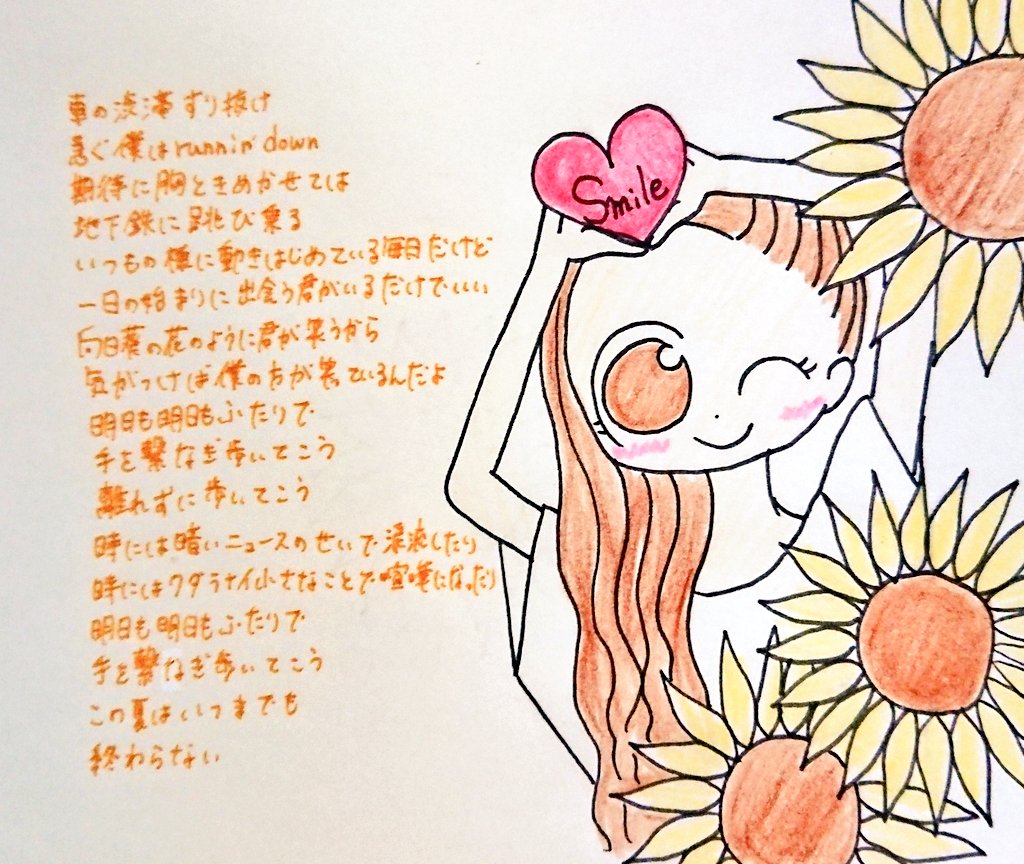 車の渋滞すり抜け
急ぐ僕はrunnin' down
期待に胸ときめかせては
地下鉄に跳び乗る
いつもの様に動きはじめている毎日だけど
一日の始まりに出会う君がいるだけでいい
向日葵の花のように君が笑うから
気がつけば僕の方が笑っているんだよ
明日も明日もふたりで
手を繋なぎ歩いてこう
離れずに歩いてこう
時には暗いニュースのせいで涙流したり
時にはクダラナイ小さなことで喧嘩になったり
明日も明日もふたりで
手を繋なぎ歩いてこう
この夏はいつまでも
終わらない
Smile